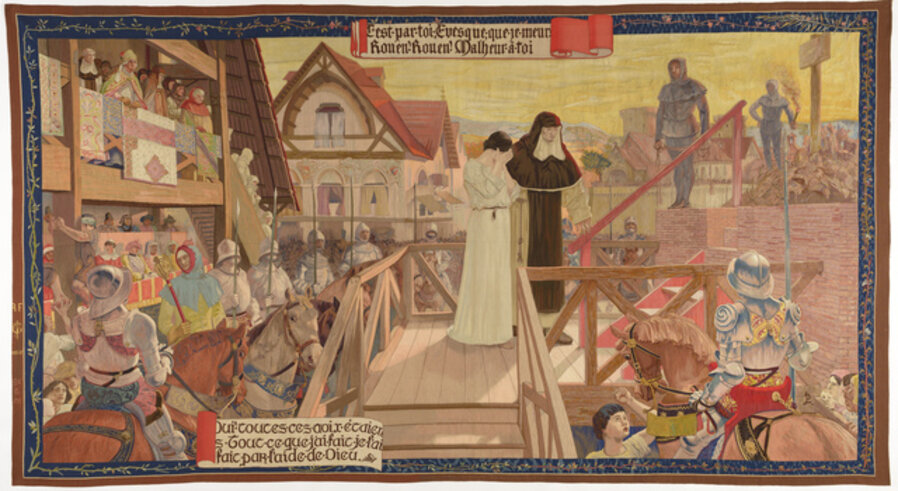 C'est·par·toi·Evesque·que·je·meur
Rouen, Rouen, Malheur·à·toi
RF
Oui·toutes·ces·voix·étaien
s·Tout·ce·que·j'ai·fait·je·l'ai
fait·par·l'aide·de·Dieu.